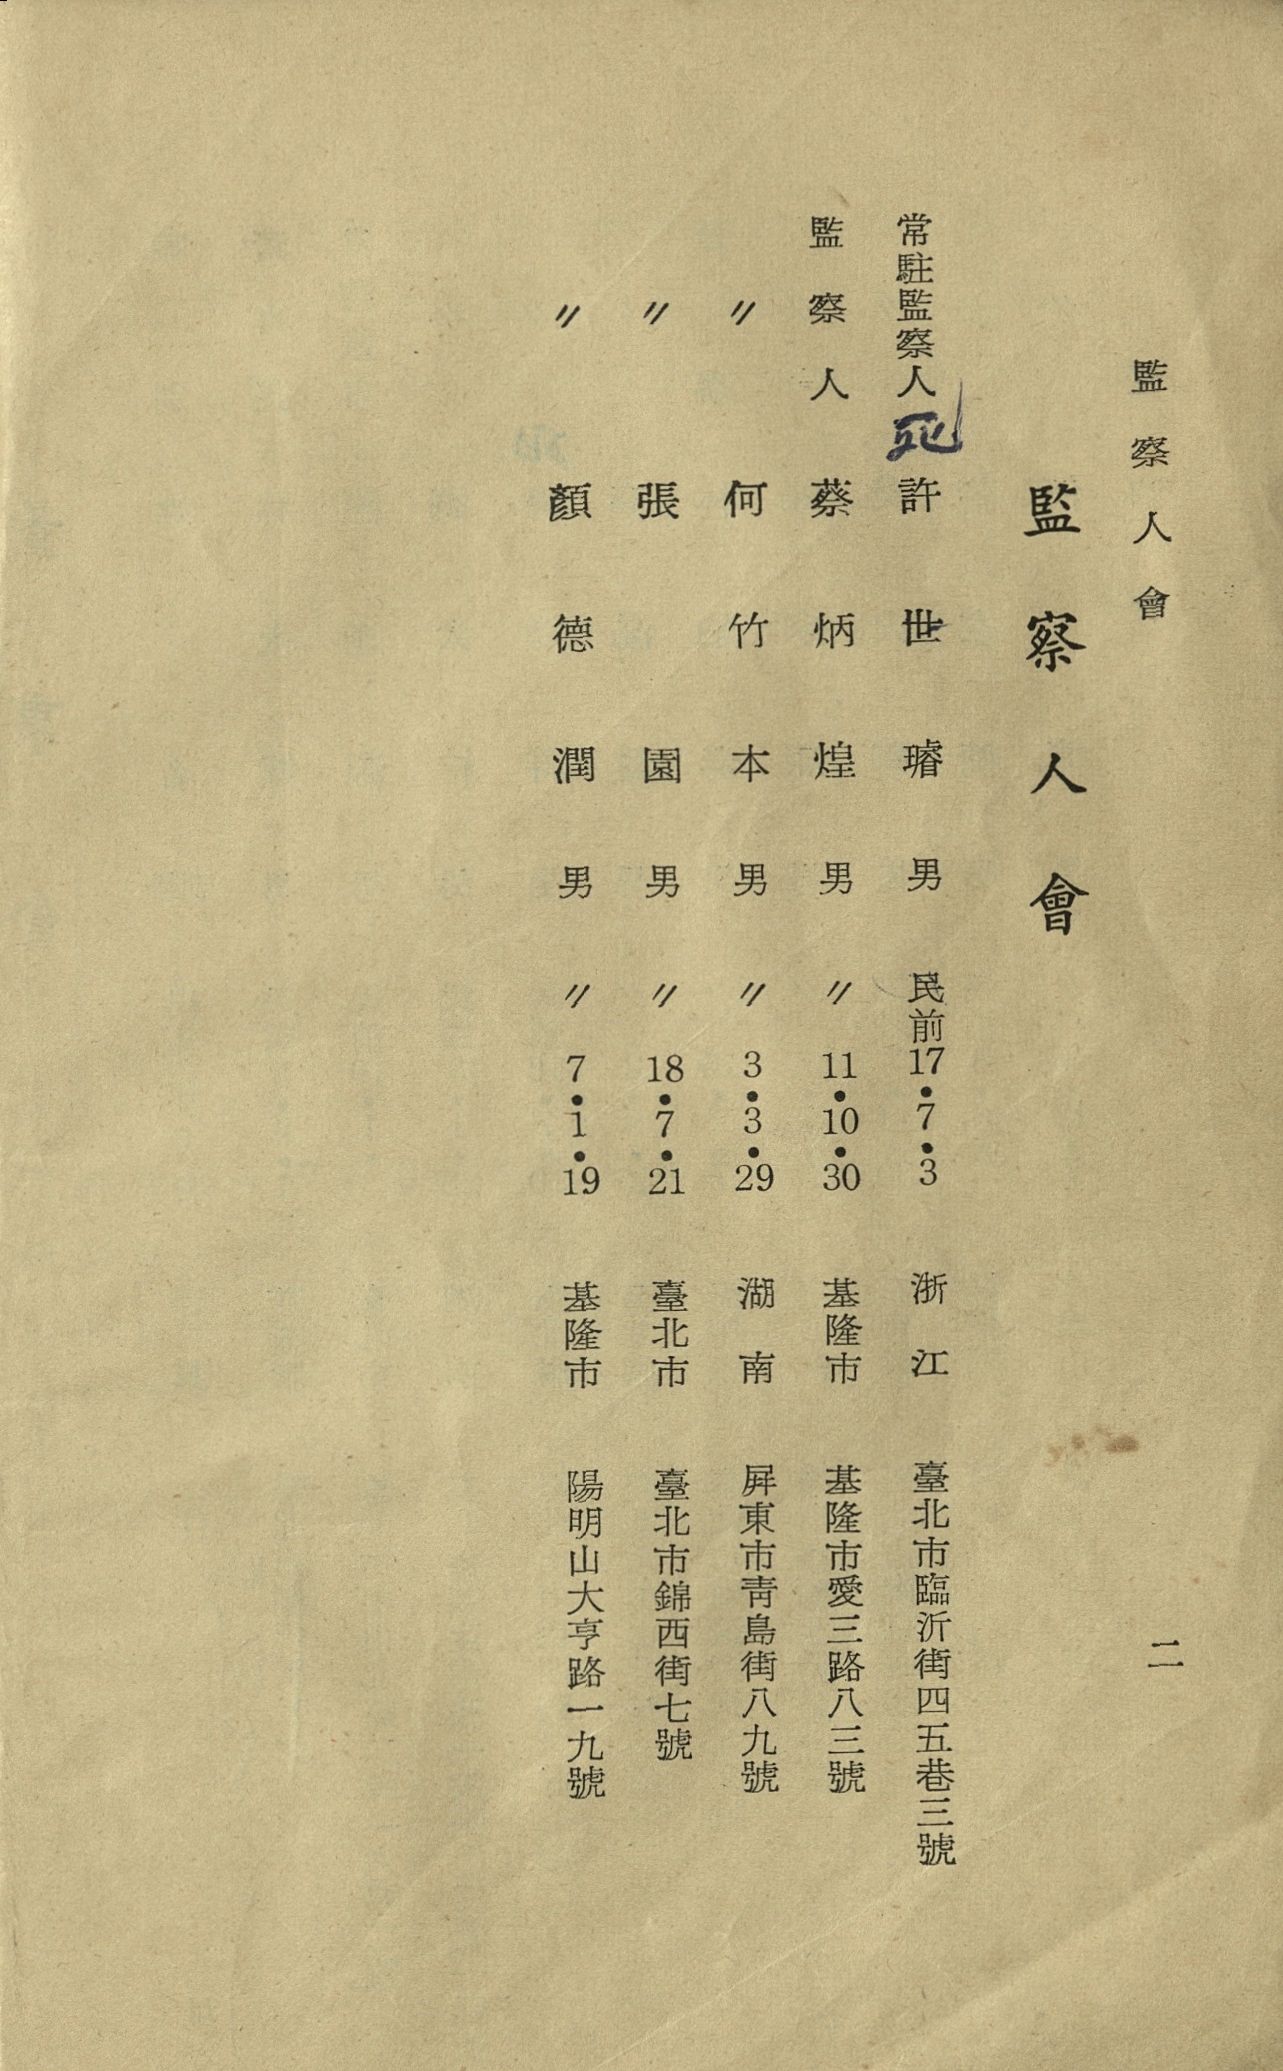 監察人會
二
監察人會
常駐監察人 死 許世璿 男 民前17•7•3 浙江 臺北市臨沂街四五巷三號
監察人 蔡炳煌 男 〃 11•10•30 基隆市 基隆市愛三路八三號
〃 何竹本 男 〃 3•3•29 湖南 屛東市靑島街八九號
〃 張園 男 〃 18•7•21 臺北市 臺北市錦西街七號
〃 顏德潤 男 〃 7•1•19 基隆市 陽明山大亨路一九號